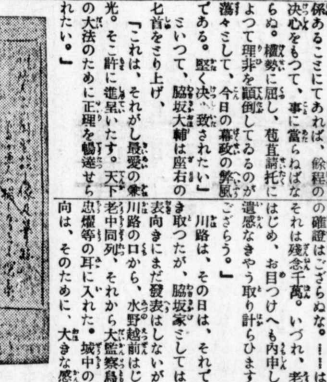 係あることにてあれば、餘程の
決心をもつて、事に當らねばな
らぬ。權勢に屈し、苞苴請托に
よつて理非を顚倒してゐるのが
蕩々として、今日の幕政の弊原
である。堅く決心致されたい」
といつて、脇坂大輔は座右の
匕首をとり上げ、
「これは、それがし最愛の兼
光。そこ許に進呈いたす。天下
の大法のために正理を暢達せら
れたい。」
の確證はござらぬな。……は
それは殘念千萬。いづれ、老
はじめ、お目つけへも内申し
遺憾なきやう取り計らひます
ござらう。」
川路は、その日は、それで
き取つたが、脇坂家としては
表向きにまだ發表はしないが
川路の口から、水野越前はじ
老中同列、それから大監察鳥
忠燿等の耳に入れた。城中の
向は、そのために、大きな感